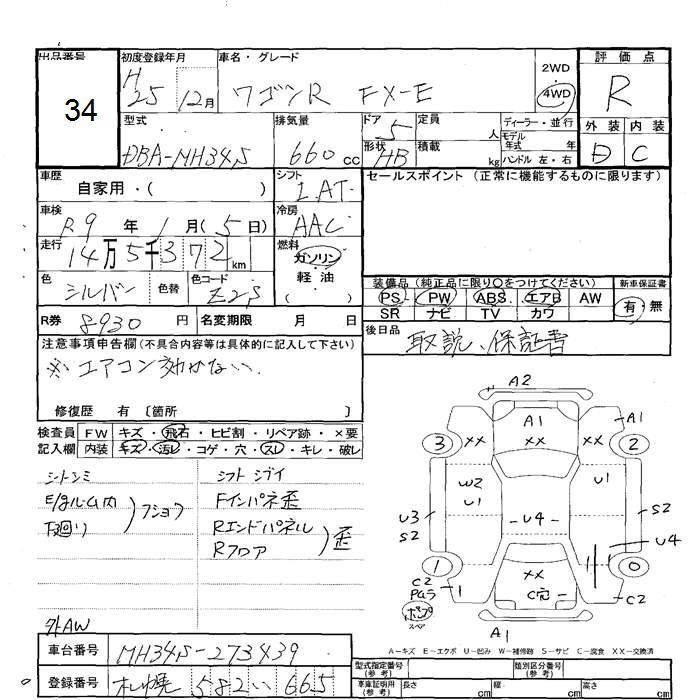 出品番号
34
初度登録年月
H
25 12月
車名・グレード
ワゴンR FX-E
2WD
4WD
評価点
R
外装 内装
D C
型式
DBA-MH34S
排気量
660 cc
ドア
5
形状
HB
定員
人
積載
kg
ディーラー・並行
モデル
年式 年
ハンドル 左・右
車歴
自家用・( )
シフト
I AT
車検
R9 年 1 月 (5 日)
冷房
AAC
走行
14万5千372 km
燃料
ガソリン
軽油
( )
色
シルバー
色替
色コード
Z2S
R券 8930 円
名変期限 月 日
セールスポイント (正常に機能するものに限ります)
装備品 (純正品に限り○をつけてください)
PS PW ABS エアB AW
SR ナビ TV カワ
新車保証書
有・無
後日品
取説、保証書
注意事項申告欄(不具合内容等は具体的に記入して下さい)
※エアコン効かない
修復歴 有 〔箇所 〕
検査員
記入欄
FW キズ・飛石・ヒビ割・リペア跡・×要
内装 キズ・汚レ・コゲ・穴・スレ・キレ・破レ
シートシミ
E/gルーム内
下廻り
フショク
シフト ジブイ
Fインパネ歪
Rエンドパネル
Rフロア
歪
外AW
A2
A1
A1
3
××
××
××
2
W2
U1
U1
U3
S2
U4
S2
U4
1
××
0
C2
1
C穴
C2
スペア
A1
A-キズ E-エクボ U-凹み W-補修跡 S-サビ C-腐食 XX-交換済
車台番号
MH34S-273439
登録番号
札幌 582 い 665
型式指定番号
(参考)
類別区分番号
(参考)
車庫証明用
(参考)
長さ cm
幅 cm
高さ cm